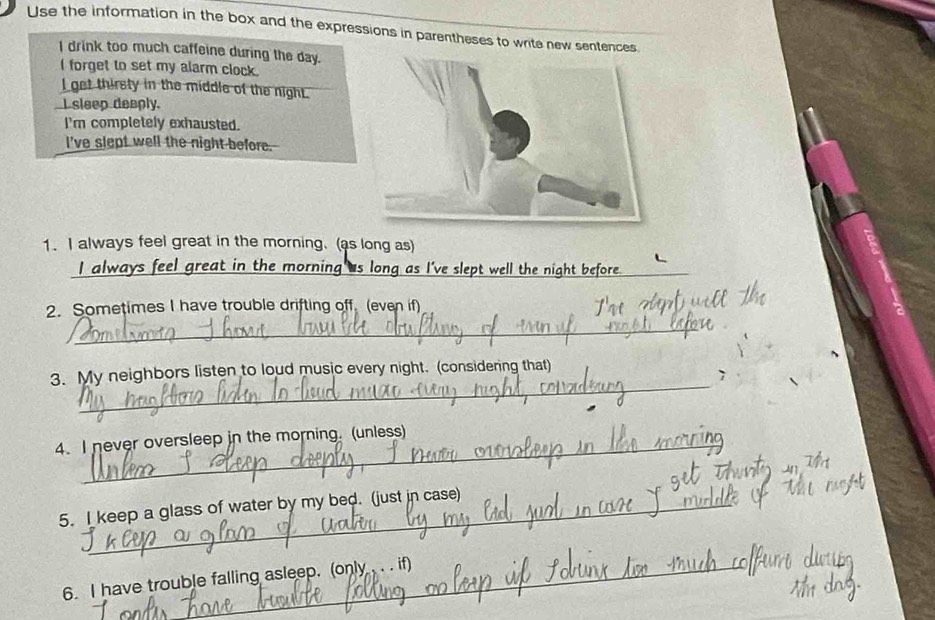 Use the information in the box and the expressions in parentheses to write new sentences.
I drink too much caffeine during the day.
I forget to set my alarm clock.
I get thirsty in the middle of the night.
I sleep deeply.
I'm completely exhausted.
I've slept well the night before.
1. I always feel great in the morning. (as long as)
I always feel great in the morning as long as I've slept well the night before.
2. Sometimes I have trouble drifting off. (even if)
I've slept well the
Sometimes I have trouble drifting of even if night before.
3. My neighbors listen to loud music every night. (considering that)
My neighbors listen to loud music every night, considering
4. I never oversleep in the morning. (unless)
Unless I sleep deeply, I never oversleep in the morning
5. I keep a glass of water by my bed. (just in case)
get thirsty in the
I keep a glass of water by my bed just in case I middle of the night
6. I have trouble falling asleep. (only . . . if)
I only have trouble falling asleep if I drink too much during
the day.